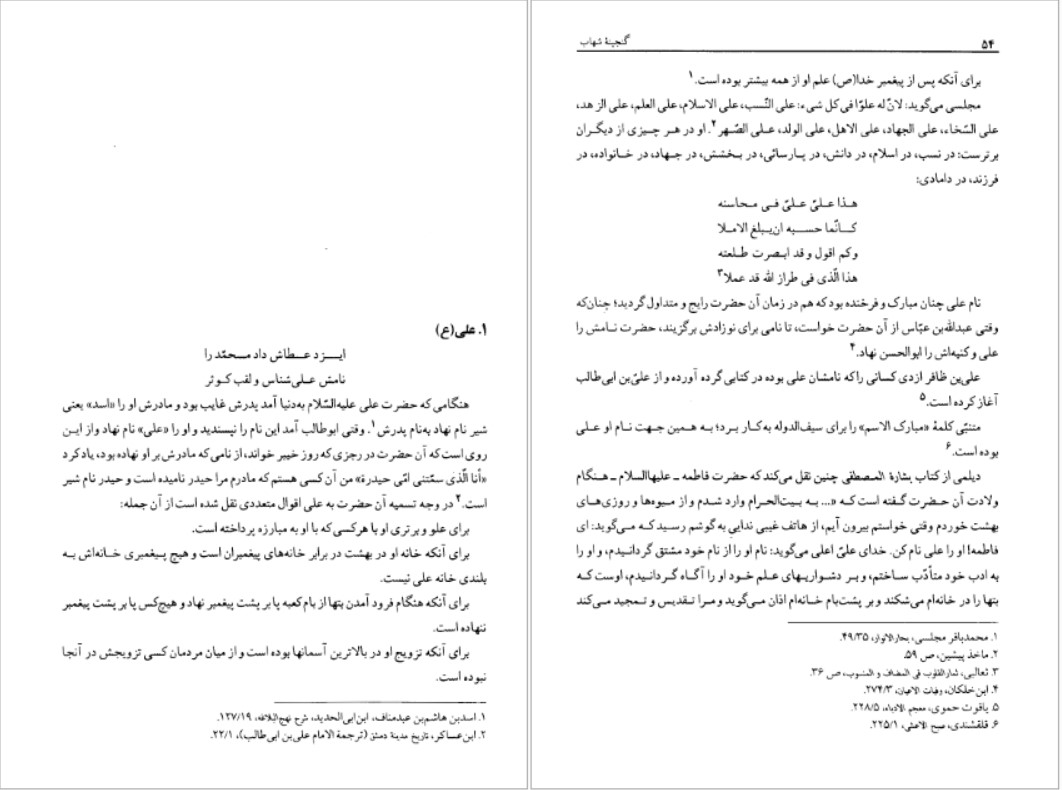 ۱. علی(ع)
ایــزد عــطاش داد مــحمّد را
نامش عـلی‌شناس و لقب کـوثر
هنگامی که حضرت علی علیه‌السّلام به‌دنیا آمد پدرش غایب بود و مادرش او را «اسد» یعنی
شیر نام نهاد به‌نام پدرش۱. وقتی ابوطالب آمد این نام را نپسندید و او را «علی» نام نهاد و از ایـن
روی است که آن حضرت در رجزی که روز خیبر خواند، از نامی که مادرش بر او نهاده بود، یاد کرد
«أنا الّذی سمّتنی امّی حیدرة» من آن کسی هستم که مادرم مرا حیدر نامیده است و حیدر نام شیر
است.۲ در وجه تسمیه آن حضرت به علی اقوال متعددی نقل شده است از آن جمله:
برای علو و برتری او با هر کسی که با او به مبارزه پرداخته است.
برای آنکه خانه او در بهشت در برابر خانه‌های پیغمبران است و هیچ پـیغمبری خـانه‌اش بـه
بلندی خانه علی نیست.
برای آنکه هنگام فرود آمدن بتها از بام کعبه پا بر پشت پیغمبر نهاد و هیچ‌کس پا بر پشت پیغمبر
ننهاده است.
برای آنکه تزویج او در بالاترین آسمانها بوده است و از میان مردمان کسی تزویجش در آنجا
نبوده است.
۱. اسدبن هاشم‌بن عبدمناف، ابن‌ابی‌الحدید، شرح نهج‌البلاغه، ۱۲۷/۱۹.
۲. ابن‌عساکر، تاریخ مدینة دمشق (ترجمة الامام علی‌بن ابی‌طالب)، ۲۲/۱.
۵۴
گنجینهٔ شهاب
برای آنکه پس از پیغمبر خدا(ص) علم او از همه بیشتر بوده است.۱
مجلسی می‌گوید: لانّ له علوّا فی کل شیء: علی النّسب، علی الاسلام، علی العلم، علی الزهد،
علی السّخاء، علی الجهاد، علی الاهل، علی الولد، عـلی الصّهر۲. او در هر چـیزی از دیگـران
برترست: در نسب، در اسلام، در دانش، در پـارسائی، در بـخشش، در جـهاد، در خـانواده، در
فرزند، در دامادی:
هـذا عـلیّ علیّ فـی مـحاسنه
کــانّما حســبه ان‌یـبلغ الامـلا
وکم اقول و قد ابـصرت طـلعته
هذا الّذی فی طراز الله قد عملا۳
نام علی چنان مبارک و فرخنده بود که هم در زمان آن حضرت رایج و متداول گردید؛ چنان‌که
وقتی عبدالله‌بن عبّاس از آن حضرت خواست، تا نامی برای نوزادش برگزیند، حضرت نـامش را
علی و کنیه‌اش را ابوالحسن نهاد.۴
علی‌بن ظافر ازدی کسانی را که نامشان علی بوده در کتابی گرده آورده و از علیّ‌بن ابی‌طالب
آغاز کرده است.۵
متنبّی کلمهٔ «مبارک الاسم» را برای سیف‌الدوله به‌کار بـرد؛ بـه هـمین جـهت نـام او عـلی
بوده است.۶
دیلمی از کتاب بشارة المصطفی چنین نقل می‌کند که حضرت فاطمه ـ علیهاالسلام ـ هـنگام
ولادت آن حـضرت گـفته است کـه «... بـه بـیت‌الحرام وارد شـدم و از مـیوه‌ها و روزی‌های
بهشت خوردم وقتی خواستم بیرون آیم، از هاتف غیبی ندایی به گوشم رسـید کـه مـی‌گوید: ای
فاطمه! او را علی نام کن. خدای علیّ اعلی می‌گوید: نام او را از نام خود مشتق گردانـیدم، و او را
به ادب خود متأدّب ساختم، و بـر دشـواریهای عـلم خـود او را آگـاه گـردانـیدم، اوست کـه
بتها را در خانه‌ام می‌شکند و بر پشت‌بام خانه‌ام اذان می‌گوید و مـرا تـقدیس و تـمجید می‌کند
۱. محمدباقر مجلسی، بحارالانوار، ۴۹/۳۵.
۲. ماخذ پیشین، ص ۵۹.
۳. ثعالبی، ثمارالقلوب فی المضاف و المنسوب، ص ۳۶.
۴. ابن‌خلکان، وفیات الاعیان، ۲۷۴/۳.
۵. یاقوت حموی، معجم الادباء، ۲۲۸/۵.
۶. قلقشندی، صبح الاعشی، ۲۲۵/۱.